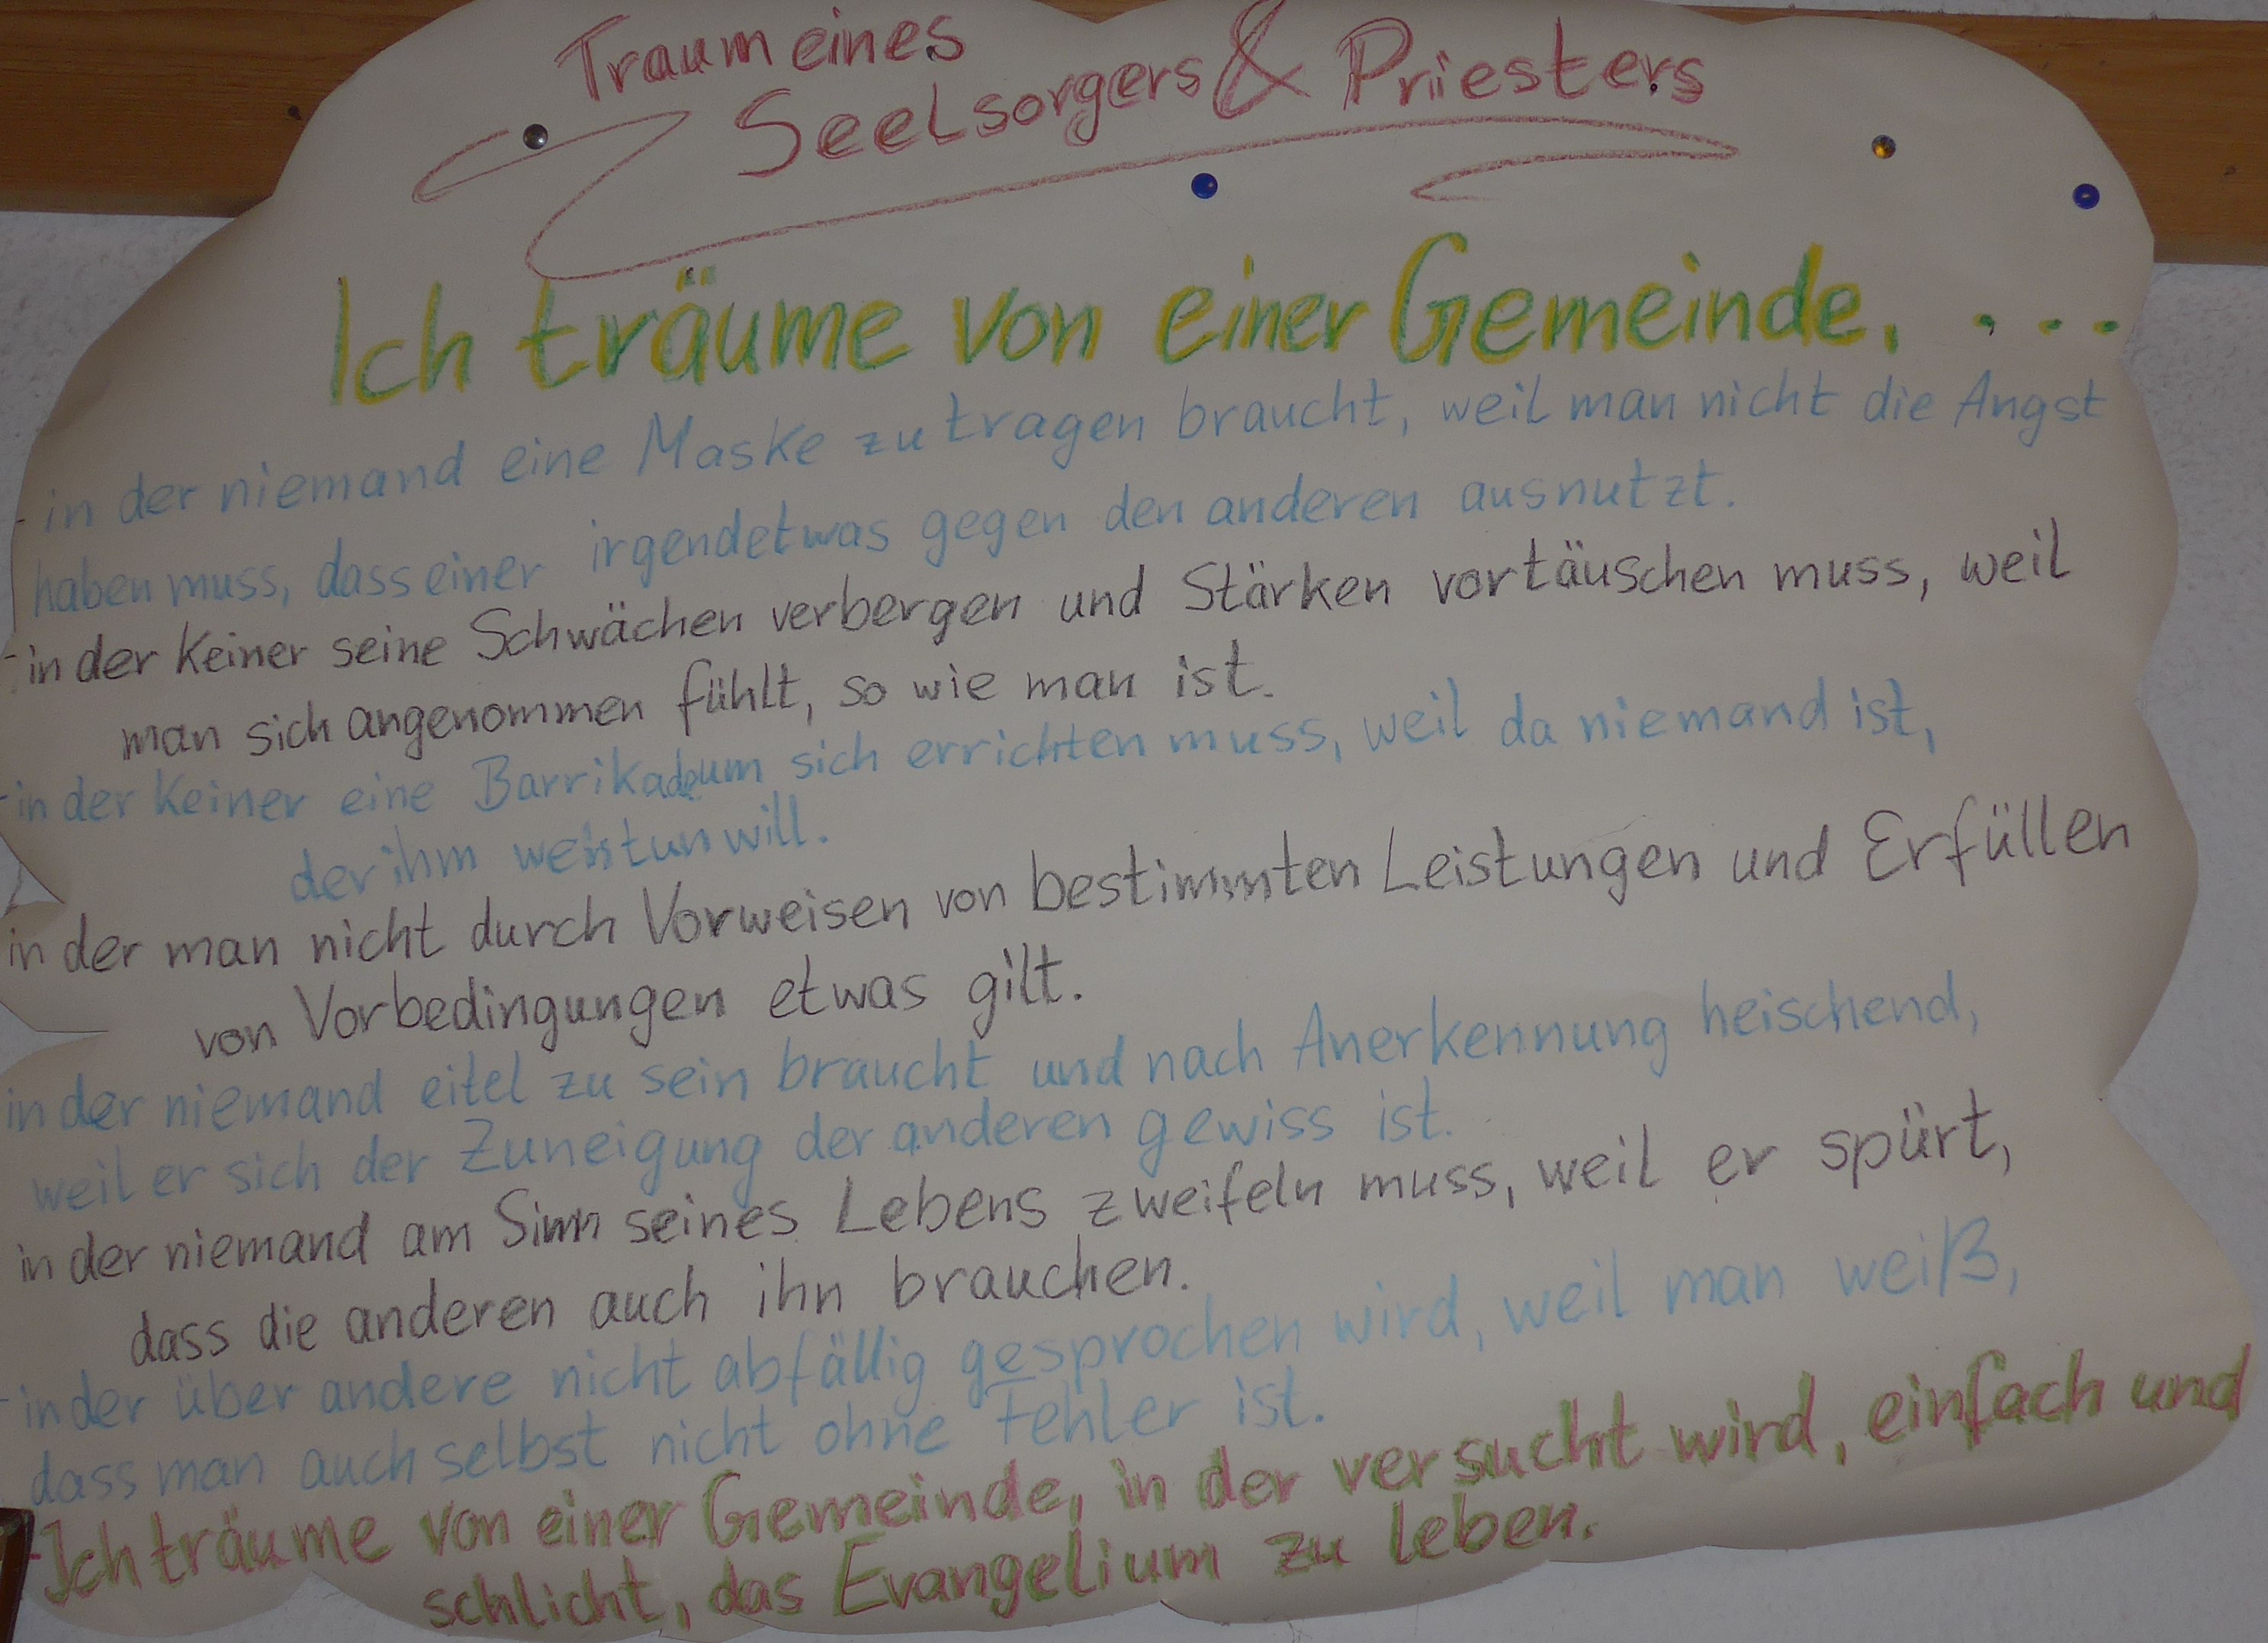 Traum eines
Seelsorgers & Priesters
Ich träume von einer Gemeinde, ...
- in der niemand eine Maske zu tragen braucht, weil man nicht die Angst
haben muss, dass einer irgendetwas gegen den anderen ausnutzt.
- in der Keiner seine Schwächen verbergen und Stärken vortäuschen muss, weil
man sich angenommen fühlt, so wie man ist.
- in der Keiner eine Barrikade um sich errichten muss, weil da niemand ist,
der ihm wehtun will.
in der man nicht durch Vorweisen von bestimmten Leistungen und Erfüllen
von Vorbedingungen etwas gilt.
in der niemand eitel zu sein braucht und nach Anerkennung heischend,
weil er sich der Zuneigung der anderen gewiss ist.
in der niemand am Sinn seines Lebens zweifeln muss, weil er spürt,
dass die anderen auch ihn brauchen.
- in der über andere nicht abfällig gesprochen wird, weil man weiß,
dass man auch selbst nicht ohne Fehler ist.
- Ich träume von einer Gemeinde, in der versucht wird, einfach und
schlicht, das Evangelium zu leben.